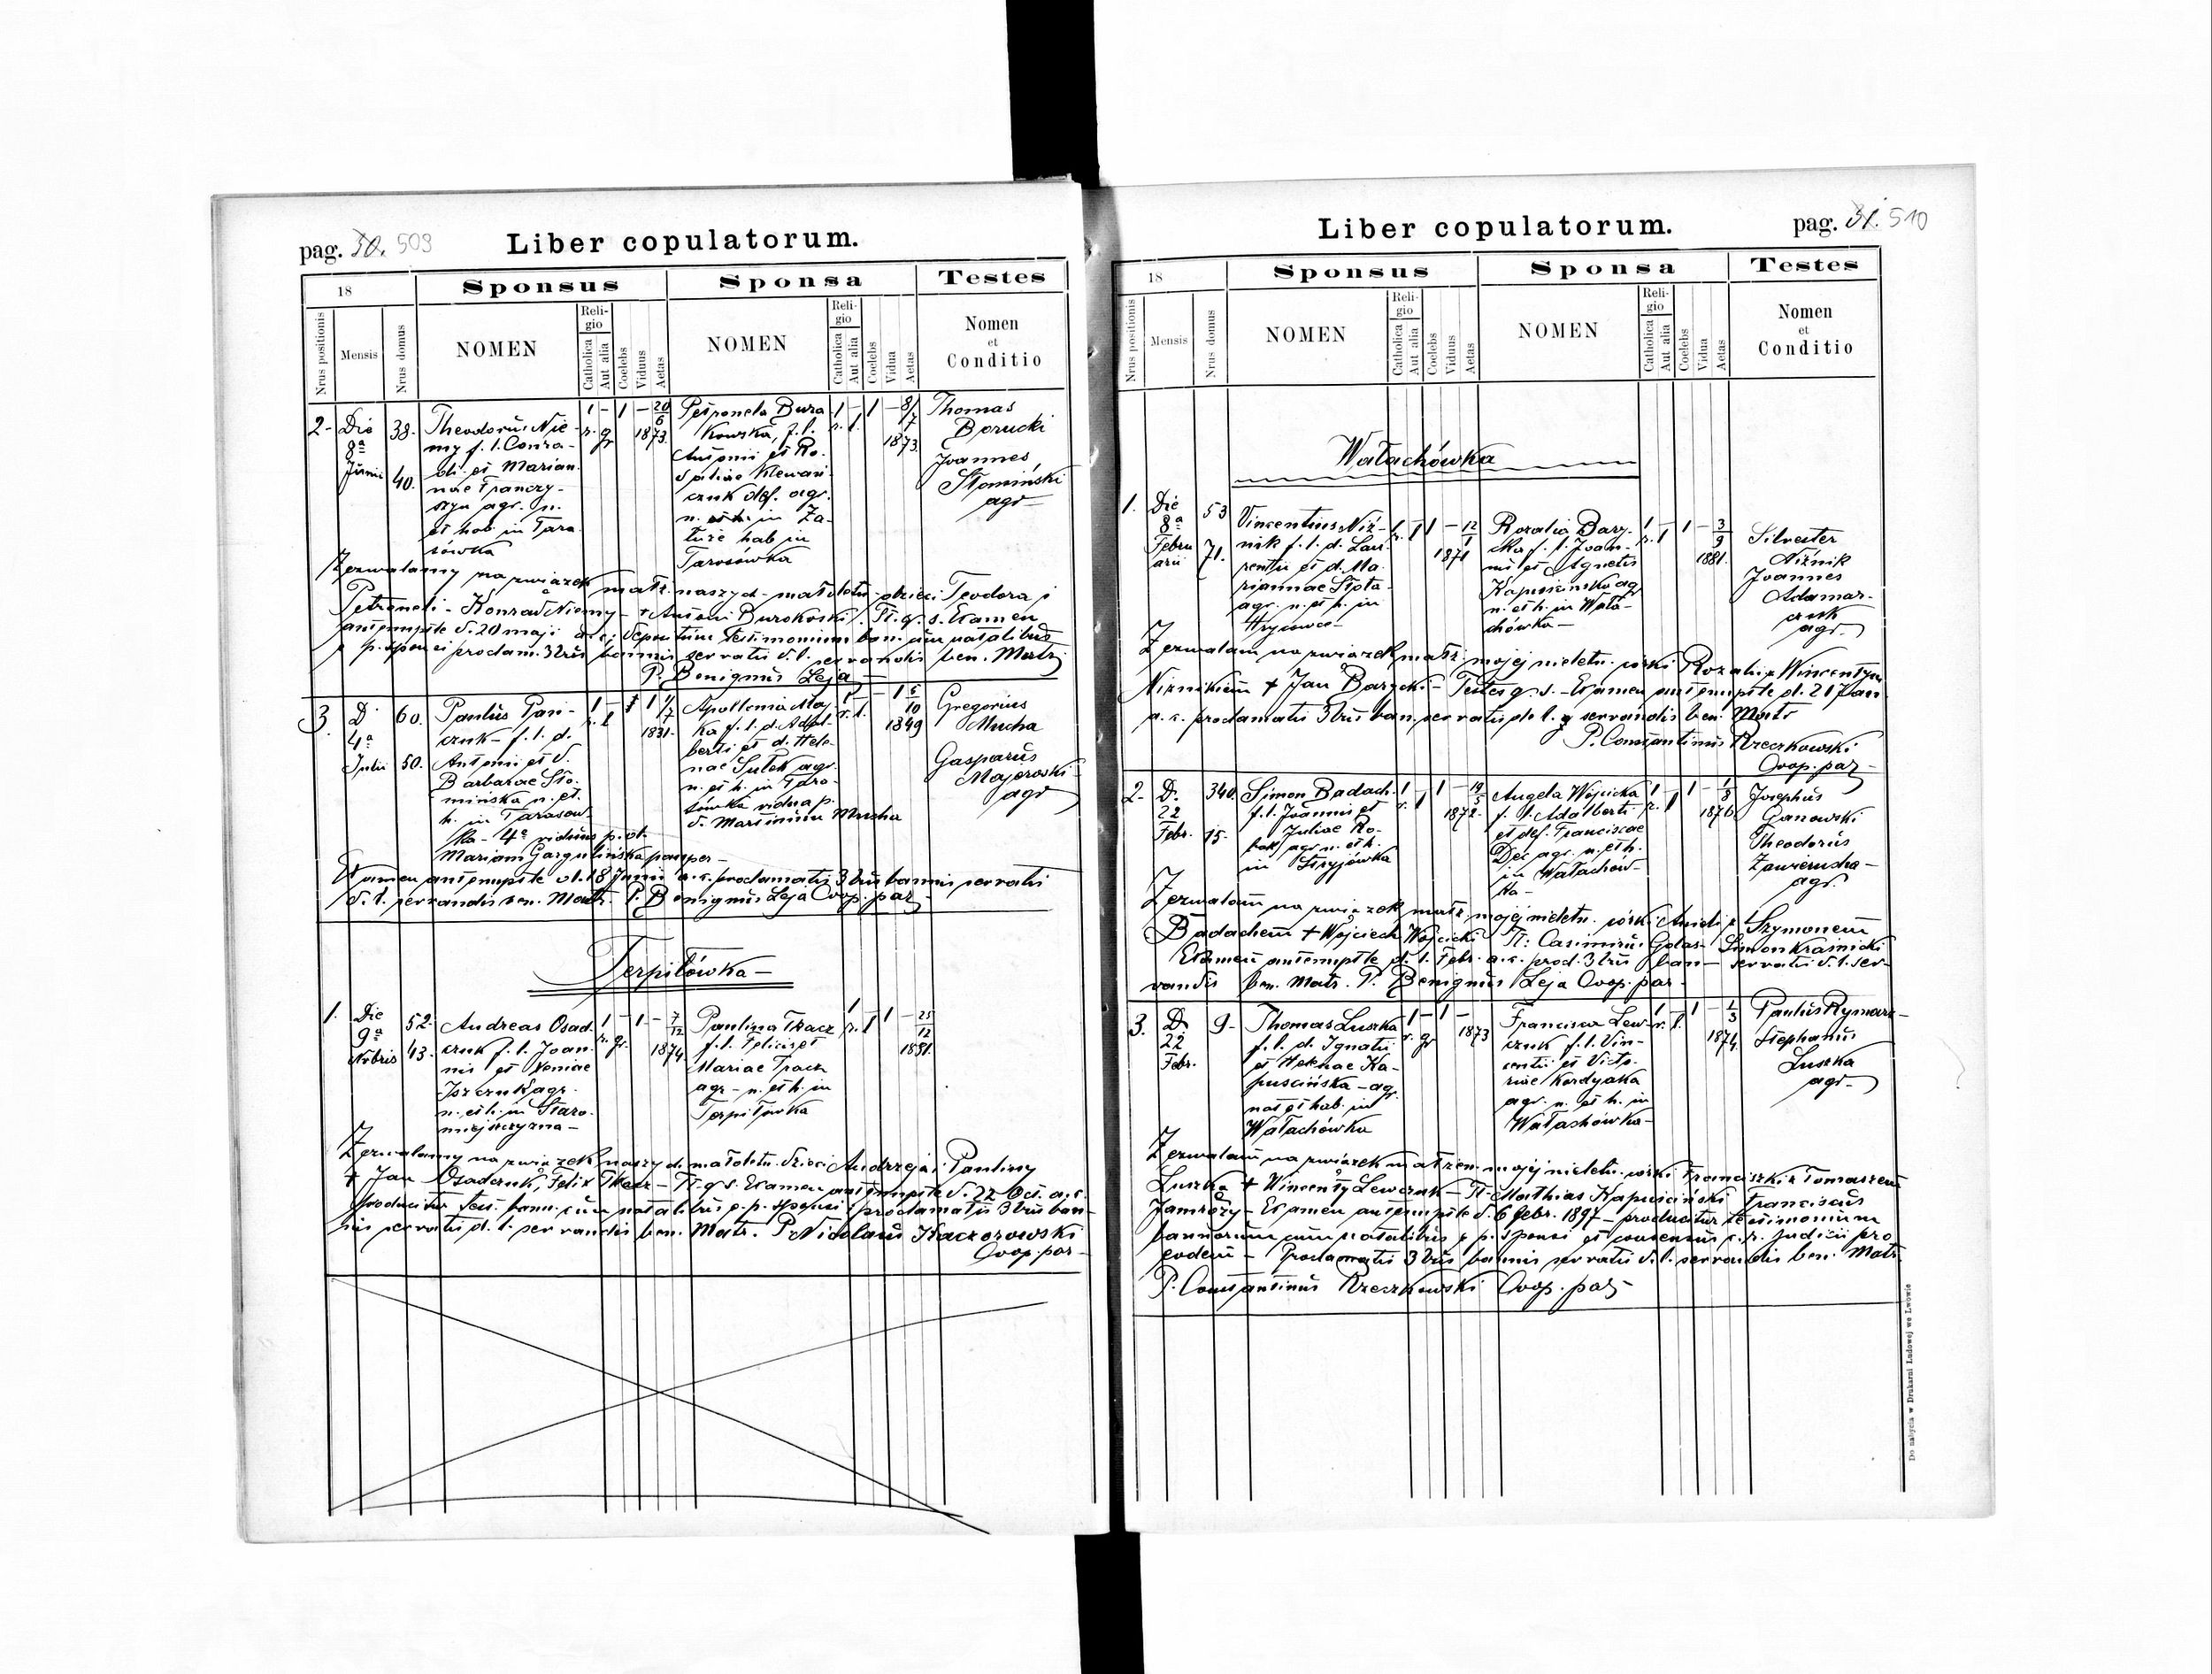 pag. 30. 509
Liber copulatorum.
18
Sponsus
Sponsa
Testes
Nrus positionis
Mensis
Nrus domus
NOMEN
Religio
Catholica
Aut alia
Coelebs
Viduus
Aetas
NOMEN
Religio
Catholica
Aut alia
Coelebs
Vidua
Aetas
Nomen
et
Conditio
2. Die
8ª
Junii
38.
40.
Theodorus Nie-
my f. l. Conra-
di et Marian
nae Franczy-
szyn agr. n.
et hab. in Tara
sówka
1 - 1 - 20
6
r. gr 1873.
Petronela Bura
kowska, f. l.
Antonii et Ro-
saliae Klewań
czuk def. agr.
n. in Za-
łuże hab in
Tarasówka
1 - 1 - 8/7
r. l. 1873.
Thomas
Borucki
Joannes
Słomiński
agr
Zezwalamy na związek małż. naszych małoletn. dzieci Teodora i
Petroneli - Konrad Niemy - + Antoni Burakoski. Tt. q. s. Examen
antenuptle d. 20 maji a. c. testimonium ban. cum natalibus
p. sponsi proclam. 3 bus bannis servatis d. l. servandis ben. Matr.
P. Benignus Leja
3. D.
4ª
Julii
60.
50.
Paulus Pan-
czuk - f. l. d.
Antonii et d.
Barbarae Sło-
mińska n. et
h. in Tarasow-
ka - 4ª viduus p. ob.
Mariam Gargulińska pauper -
1831.
Apollonia Maj
ka f. l. d. Adal-
berti et d. Hele-
nae Sutek agr.
n. et h. in Tara
sówka vidua p.
d. Martinum Mucha
1849
Gregorius
Mucha
Gasparus
Majeroski
agr
Examen antenuptle d. 18 Junii a. c. proclamatis 3 bus bannis servatis
d. l. servandis ben. Matr. P. Benignus Leja Coop. par.
Terpiłówka -
1. Die
9ª
Nvbris
52.
43.
Andreas Osad-
czuk f. l. Joan-
nis et Xeniae
agr.
n. et h. in Staro-
miejszczyzna -
1 - 1 - 7
12
r. gr. 1874
Paulina Tkacz
f. l. Felicis et
Mariae Tracz
agr - n. et h. in
Terpiłówka
1 - 1 - 25
12
r. l 1881.
Zezwalamy na związek naszych małoletn. dzieci Andrzeja i Pauliny
+ Jan Osadczuk, Felix Tkacz - Tt. q. s. Examen antenuptle d. 22 Oct. a. c.
producitur test. bann. cum natalibus p. p. sponsi proclamatis 3 bus ban-
nis servatis d. l. servandis ben. Matr. P. Nicolaus Kaczorowski
Coop. par -
Liber copulatorum.
pag. 31. 510
18
Sponsus
Sponsa
Testes
Nrus positionis
Mensis
Nrus domus
NOMEN
Religio
Catholica
Aut alia
Coelebs
Viduus
Aetas
NOMEN
Religio
Catholica
Aut alia
Coelebs
Vidua
Aetas
Nomen
et
Conditio
Wałachówka
1. Die
8ª
Febru
arii
53
71.
Vincentius Niż-
nik f. l. d. Lau-
rentii et d. Ma-
riannae Słota-
agr. n. et h. in
1 - 1 - 12
1
1871
Rozalia Barys-
ka f. l. Joan-
nis et Agnetis
Kapuścińska ag
n. et h. in Wała-
chówka -
1 - 1 - 3
9
1881.
Silvester
Niżnik
Joannes
Adamar-
czuk
agr.
Zezwalam na związek małż. mojej nieletn. córki Rozalii z Wincentym
Niżnikiem + Jan Barycki - Testes q. s. - Examen antenuptle d. 21 Jan.
a. c. proclamatis 3 bus ban. servatis de l. servandis ben. Matr
P. Constantinus Rzeczkowski
Coop. par -
2. D.
22
Febr.
340.
15.
Simon Badach
f. l. Joannis et
Juliae Ro-
bak agr n. et h.
in Stryjówka
1872.
Angela Wójcicka
f. l. Adalberti
et def. Franciscae
Dec agr. n. et h.
in Wałachów-
ka -
1 - 1 - 1
8
1876.
Josephus
Ganowski
Theodorus
Zawierucha -
agr.
Zezwalam na związek małż. mojej nieletn. córki Anieli z Szymonem
Badachem + Wojciech Wójcicki Tt: Casimirus Golas - Simon Kraśnicki
Examen antenuptle d. 1. Febr. a. c. prod. 3 bus ban - servatis d. l. ser-
vandis ben. Matr. P. Benignus Leja Coop. par -
3. D.
22
Febr.
9.
Thomas Luszka
f. l. d. Ignatii
et Helenae Ka-
puscińska - ag.
nat et hab. in
Wałachówka
1 - 1 -
r. gr 1873
Francisca Lew-
czuk f. l. Vin-
centii et Victo-
riae Kordyaka
agr. n. et h. in
Wałachówka -
1 - 1 - 1
3
r. l. 1874.
Paulus Rymarz -
Stephanus
Luszka
agr -
Zezwalam na związek małżen. mojej nieletn. córki Franciszki z Tomaszem
Luszka + Wincenty Lewczuk - Tt. Mathias Kapuściński Franciscus
Jamroży - Examen antenuptle d. 6 febr. 1897 - producitur testimonium
bannorum cum natalibus p. p. sponsi et consensus c. r. judicii pro
eodem - Proclamatis 3 bus bannis servatis d. l. servandis ben. Matr.
P. Constantinus Rzeczkowski Coop. par -
Do nabycia w Drukarni Ludowej we Lwowie